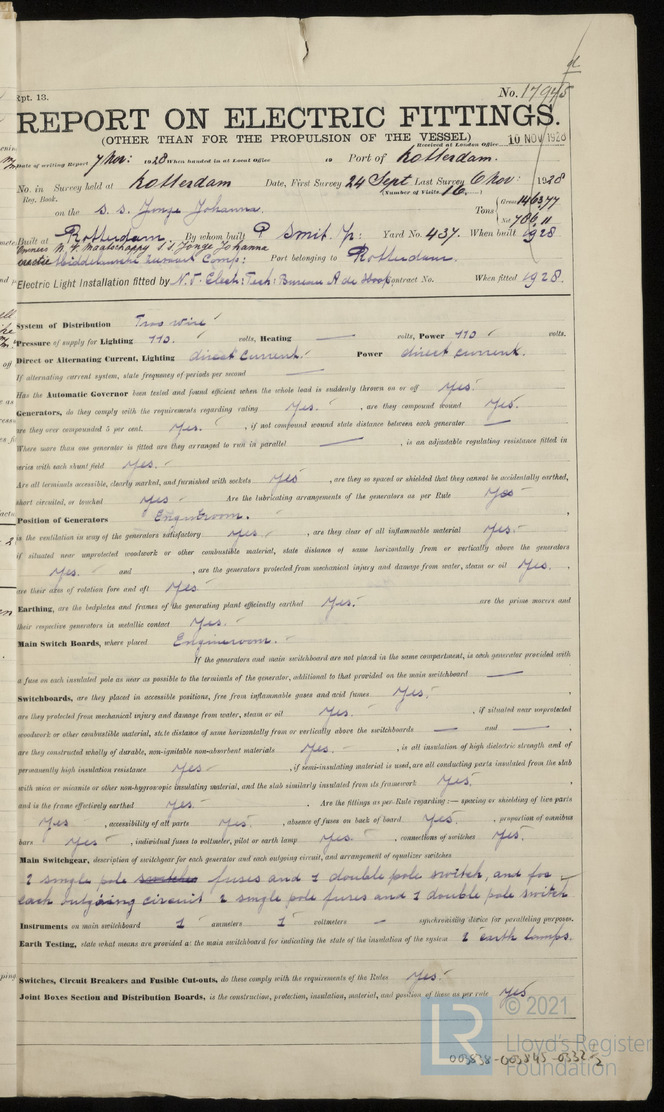 Rpt. 13.
No. 17945
REPORT ON ELECTRIC FITTINGS.
(OTHER THAN FOR THE PROPULSION OF THE VESSEL)
Received at London Office 10 NOV 1928
Date of writing Report 7 Nov: 1928 When handed in at Local Office 19 Port of Rotterdam.
No. in Survey held at Rotterdam Date, First Survey 24 Sept Last Survey 6 Nov: 1928
Reg. Book. (Number of Visits 16.)
on the s. s. Jonge Johanna. Tons Gross 14637
Net 706
Built at Rotterdam By whom built P Smit. Jr: Yard No. 437. When built 1928
Owners s.s. Jonge Johanna
Port belonging to Rotterdam.
Electric Light Installation fitted by N.V. Elect: Tech: Bureau A de Hoop Contract No. When fitted 1928.
System of Distribution Two wire
Pressure of supply for Lighting 110. volts, Heating — volts, Power 110 volts.
Direct or Alternating Current, Lighting direct current. Power direct current.
If alternating current system, state frequency of periods per second —
Has the Automatic Governor been tested and found efficient when the whole load is suddenly thrown on or off Yes.
Generators, do they comply with the requirements regarding rating Yes. , are they compound wound Yes.
are they over compounded 5 per cent. Yes. , if not compound wound state distance between each generator —
Where more than one generator is fitted are they arranged to run in parallel — , is an adjustable regulating resistance fitted in
series with each shunt field Yes.
Are all terminals accessible, clearly marked, and furnished with sockets Yes , are they so spaced or shielded that they cannot be accidentally earthed,
short circuited, or touched Yes Are the lubricating arrangements of the generators as per Rule Yes
Position of Generators Engineroom.
is the ventilation in way of the generators satisfactory Yes. , are they clear of all inflammable material Yes.
if situated near unprotected woodwork or other combustible material, state distance of same horizontally from or vertically above the generators
Yes. and , are the generators protected from mechanical injury and damage from water, steam or oil Yes.
are their axis of rotation fore and aft Yes.
Earthing, are the bedplates and frames of the generating plant efficiently earthed Yes. are the prime movers and
their respective generators in metallic contact Yes.
Main Switch Boards, where placed Engineroom.
If the generators and main switchboard are not placed in the same compartment, is each generator provided with
a fuse on each insulated pole as near as possible to the terminals of the generator, additional to that provided on the main switchboard —
Switchboards, are they placed in accessible positions, free from inflammable gases and acid fumes Yes.
are they protected from mechanical injury and damage from water, steam or oil Yes. , if situated near unprotected
woodwork or other combustible material, state distance of same horizontally from or vertically above the switchboards — and —
are they constructed wholly of durable, non-ignitable non-absorbent materials Yes. , is all insulation of high dielectric strength and of
permanently high insulation resistance Yes , if semi-insulating material is used, are all conducting parts insulated from the slab
with mica or micanite or other non-hygroscopic insulating material, and the slab similarly insulated from its framework Yes.
and is the frame effectively earthed Yes. Are the fittings as per Rule regarding:— spacing or shielding of live parts
Yes , accessibility of all parts Yes. , absence of fuses on back of board Yes. , proportion of omnibus
bars Yes , individual fuses to voltmeter, pilot or earth lamp Yes. , connections of switches Yes.
Main Switchgear, description of switchgear for each generator and each outgoing circuit, and arrangement of equalizer switches
2 single pole switches fuses and 1 double pole switch, and for
each outgoing circuit 2 single pole fuses and 1 double pole switch
Instruments on main switchboard 1 ammeters 1 voltmeters — synchronising device for paralleling purposes.
Earth Testing, state what means are provided at the main switchboard for indicating the state of the insulation of the system 2 earth lamps.
Switches, Circuit Breakers and Fusible Cut-outs, do these comply with the requirements of the Rules Yes.
Joint Boxes Section and Distribution Boards, is the construction, protection, insulation, material, and position of these as per rule Yes
© 2021
Lloyd's Register
Foundation
LR
003838-003845-0332 ½